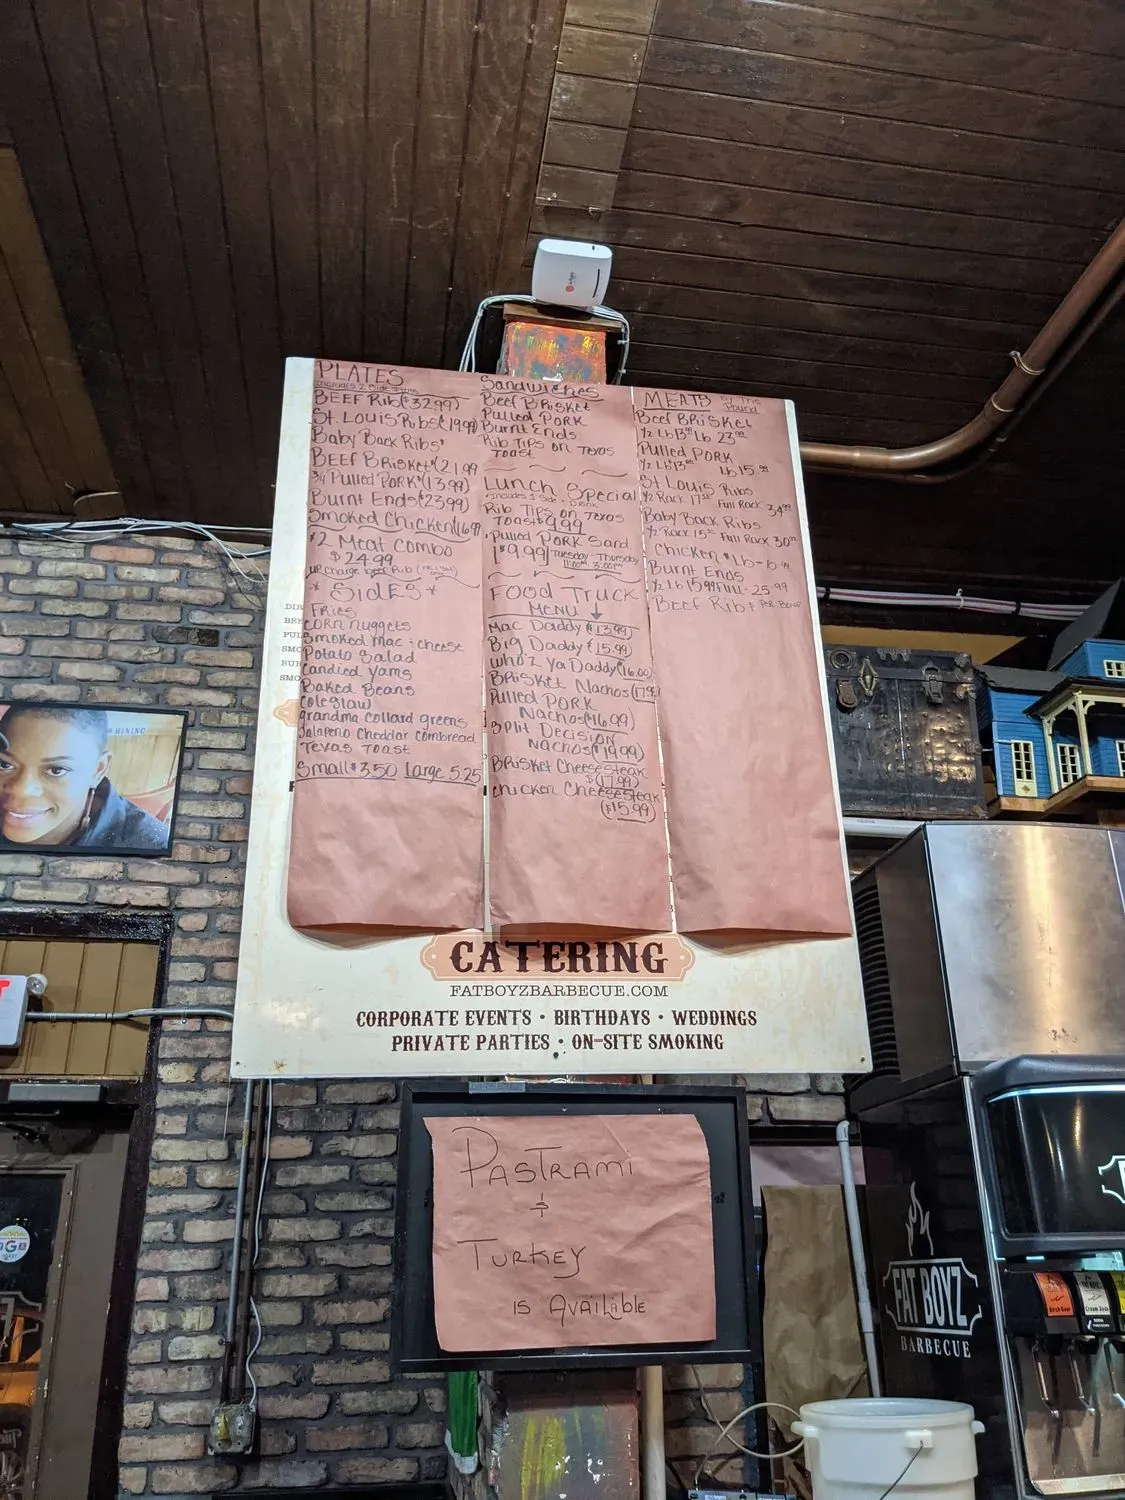 PLATES
Includes 2 Side Items
BEEF Rib($32.99)
St. Louis Ribs($19.99)
Baby Back Ribs
BEEF BRisket $21.99
Pulled PORK (13.99)
Burnt Ends($23.99)
Smoked Chicken
$2 Meat Combo
$24.99
UP Charge beef Rib
* SIDES *
FRIES
CORN nuggets
Smoked mac & cheese
Potato Salad
Candied Yams
Baked Beans
Coleslaw
Grandma Collard greens
Jalapeno Cheddar Cornbread
Texas Toast
Small $3.50 Large 5.25
Sandwiches
Beef BRisket
Pulled PORK
Burnt Ends
Rib TIPS on Texas
Toast
Lunch Special
Includes 1 Side & Drink
Rib Tips on Texas
Toast $9.99
Pulled PORK Sand.
($9.99) Tuesday - Thursday
11:00am 3:00pm
FOOD TRUCK
MENU
Mac Daddy ($13.99)
Big Daddy ($15.99)
Who'z Ya Daddy (16.00)
BRisket Nachos
Pulled PORK
Nachos($16.99)
Split Decision
Nachos($19.99)
BRisket Cheesesteak
$(17.99)
Chicken Cheesesteak
($15.99)
MEATS by The
Pound
Beef BRisket
1/2 Lb 13.99 Lb 23.99
Pulled PORK
1/2 Lb Lb 15.99
St Louis Ribs
1/2 Rack Full Rack 34.99
Baby Back Ribs
1/2 Rack Full Rack
Chicken
Burnt Ends
1/2 Lb 15.99 Full - 25.99
Beef Rib
CATERING
FATBOYZBARBECUE.COM
CORPORATE EVENTS • BIRTHDAYS • WEDDINGS
PRIVATE PARTIES • ON-SITE SMOKING
PASTRAMI
&
TURKEY
IS AVAILABLE
FAT BOYZ
BARBECUE